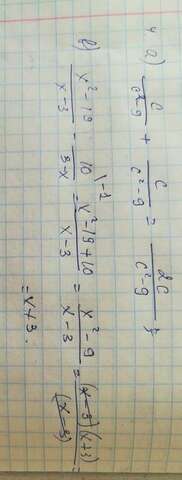 4 а) c/(c²-9) + c/(c²-9) = 2c/(c²-9);
б) (x²-19)/(x-3) - 10/(3-x) \-1 = (x²-19+10)/(x-3) = (x²-9)/(x-3) = (x-3)(x+3)/(x-3) =
= x+3.